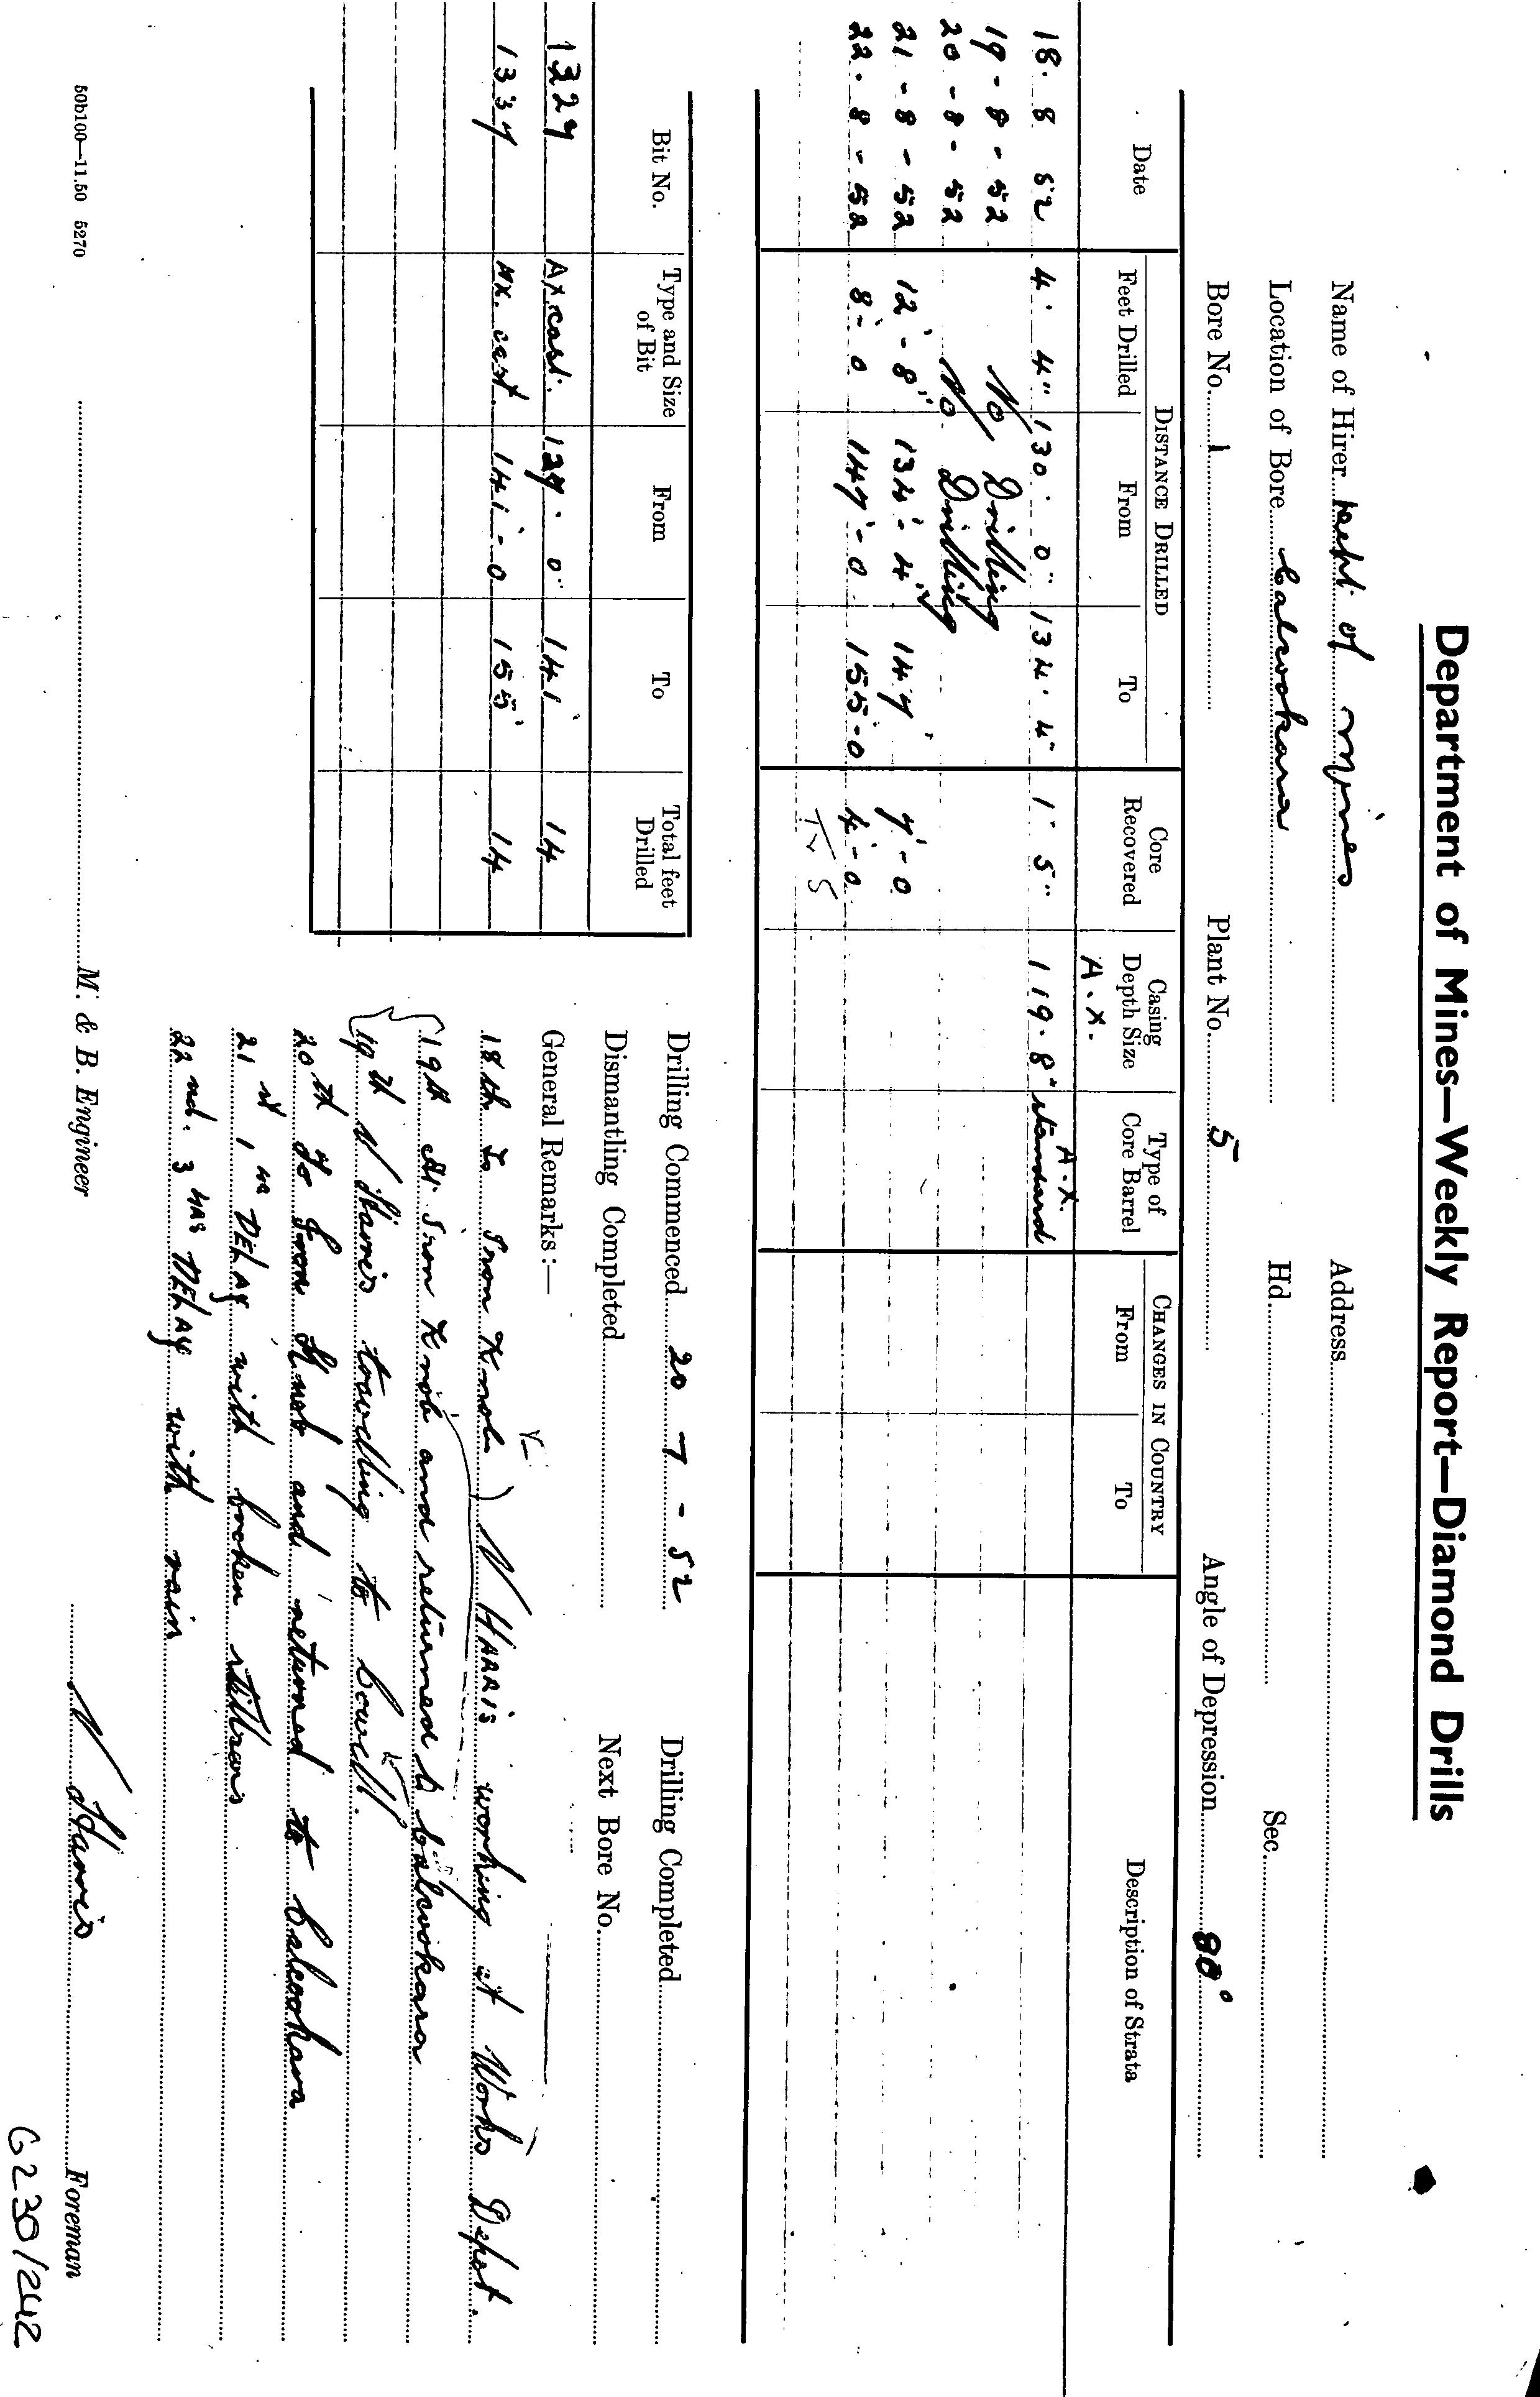 Department of Mines—Weekly Report—Diamond Drills
Name of Hirer Dept of Mines Address
Location of Bore Calcookara Hd. Sec.
Bore No. 1 Plant No. 5 Angle of Depression 80°
Date DISTANCE DRILLED Core Recovered Casing Depth Size Type of Core Barrel CHANGES IN COUNTRY Description of Strata
Feet Drilled From To From To
A.X. A.X.
18. 8 52 4' 4" 130' 0" 134' 4" 1' 5" 119' 8" standard
19-8-52 No Drilling
20-8-52 No Drilling
21-8-52 12'-8" 134'-4" 147' 7'-0
22.8-52 8'-0 147'-0 155-0 4'-0
12 5
Bit No. Type and Size of Bit From To Total feet Drilled
1327 AX cast. 127' 0" 141' 14
1337 AX. cast. 141'-0 155' 14
Drilling Commenced 20 7-52 Drilling Completed
Dismantling Completed Next Bore No.
General Remarks:—
18th To Iron Knob N HARRIS working at Works Depot.
19th At Iron Knob and returned to Calcookara
19th N Harris travelling to Cowell.
20th To Iron Knob and returned to Calcookara
21st 1 HR DELAY with broken stillsons
22nd. 3 HRS DELAY with rain
M. & B. Engineer N Harris Foreman
50b100—11.50 5270
G230/242